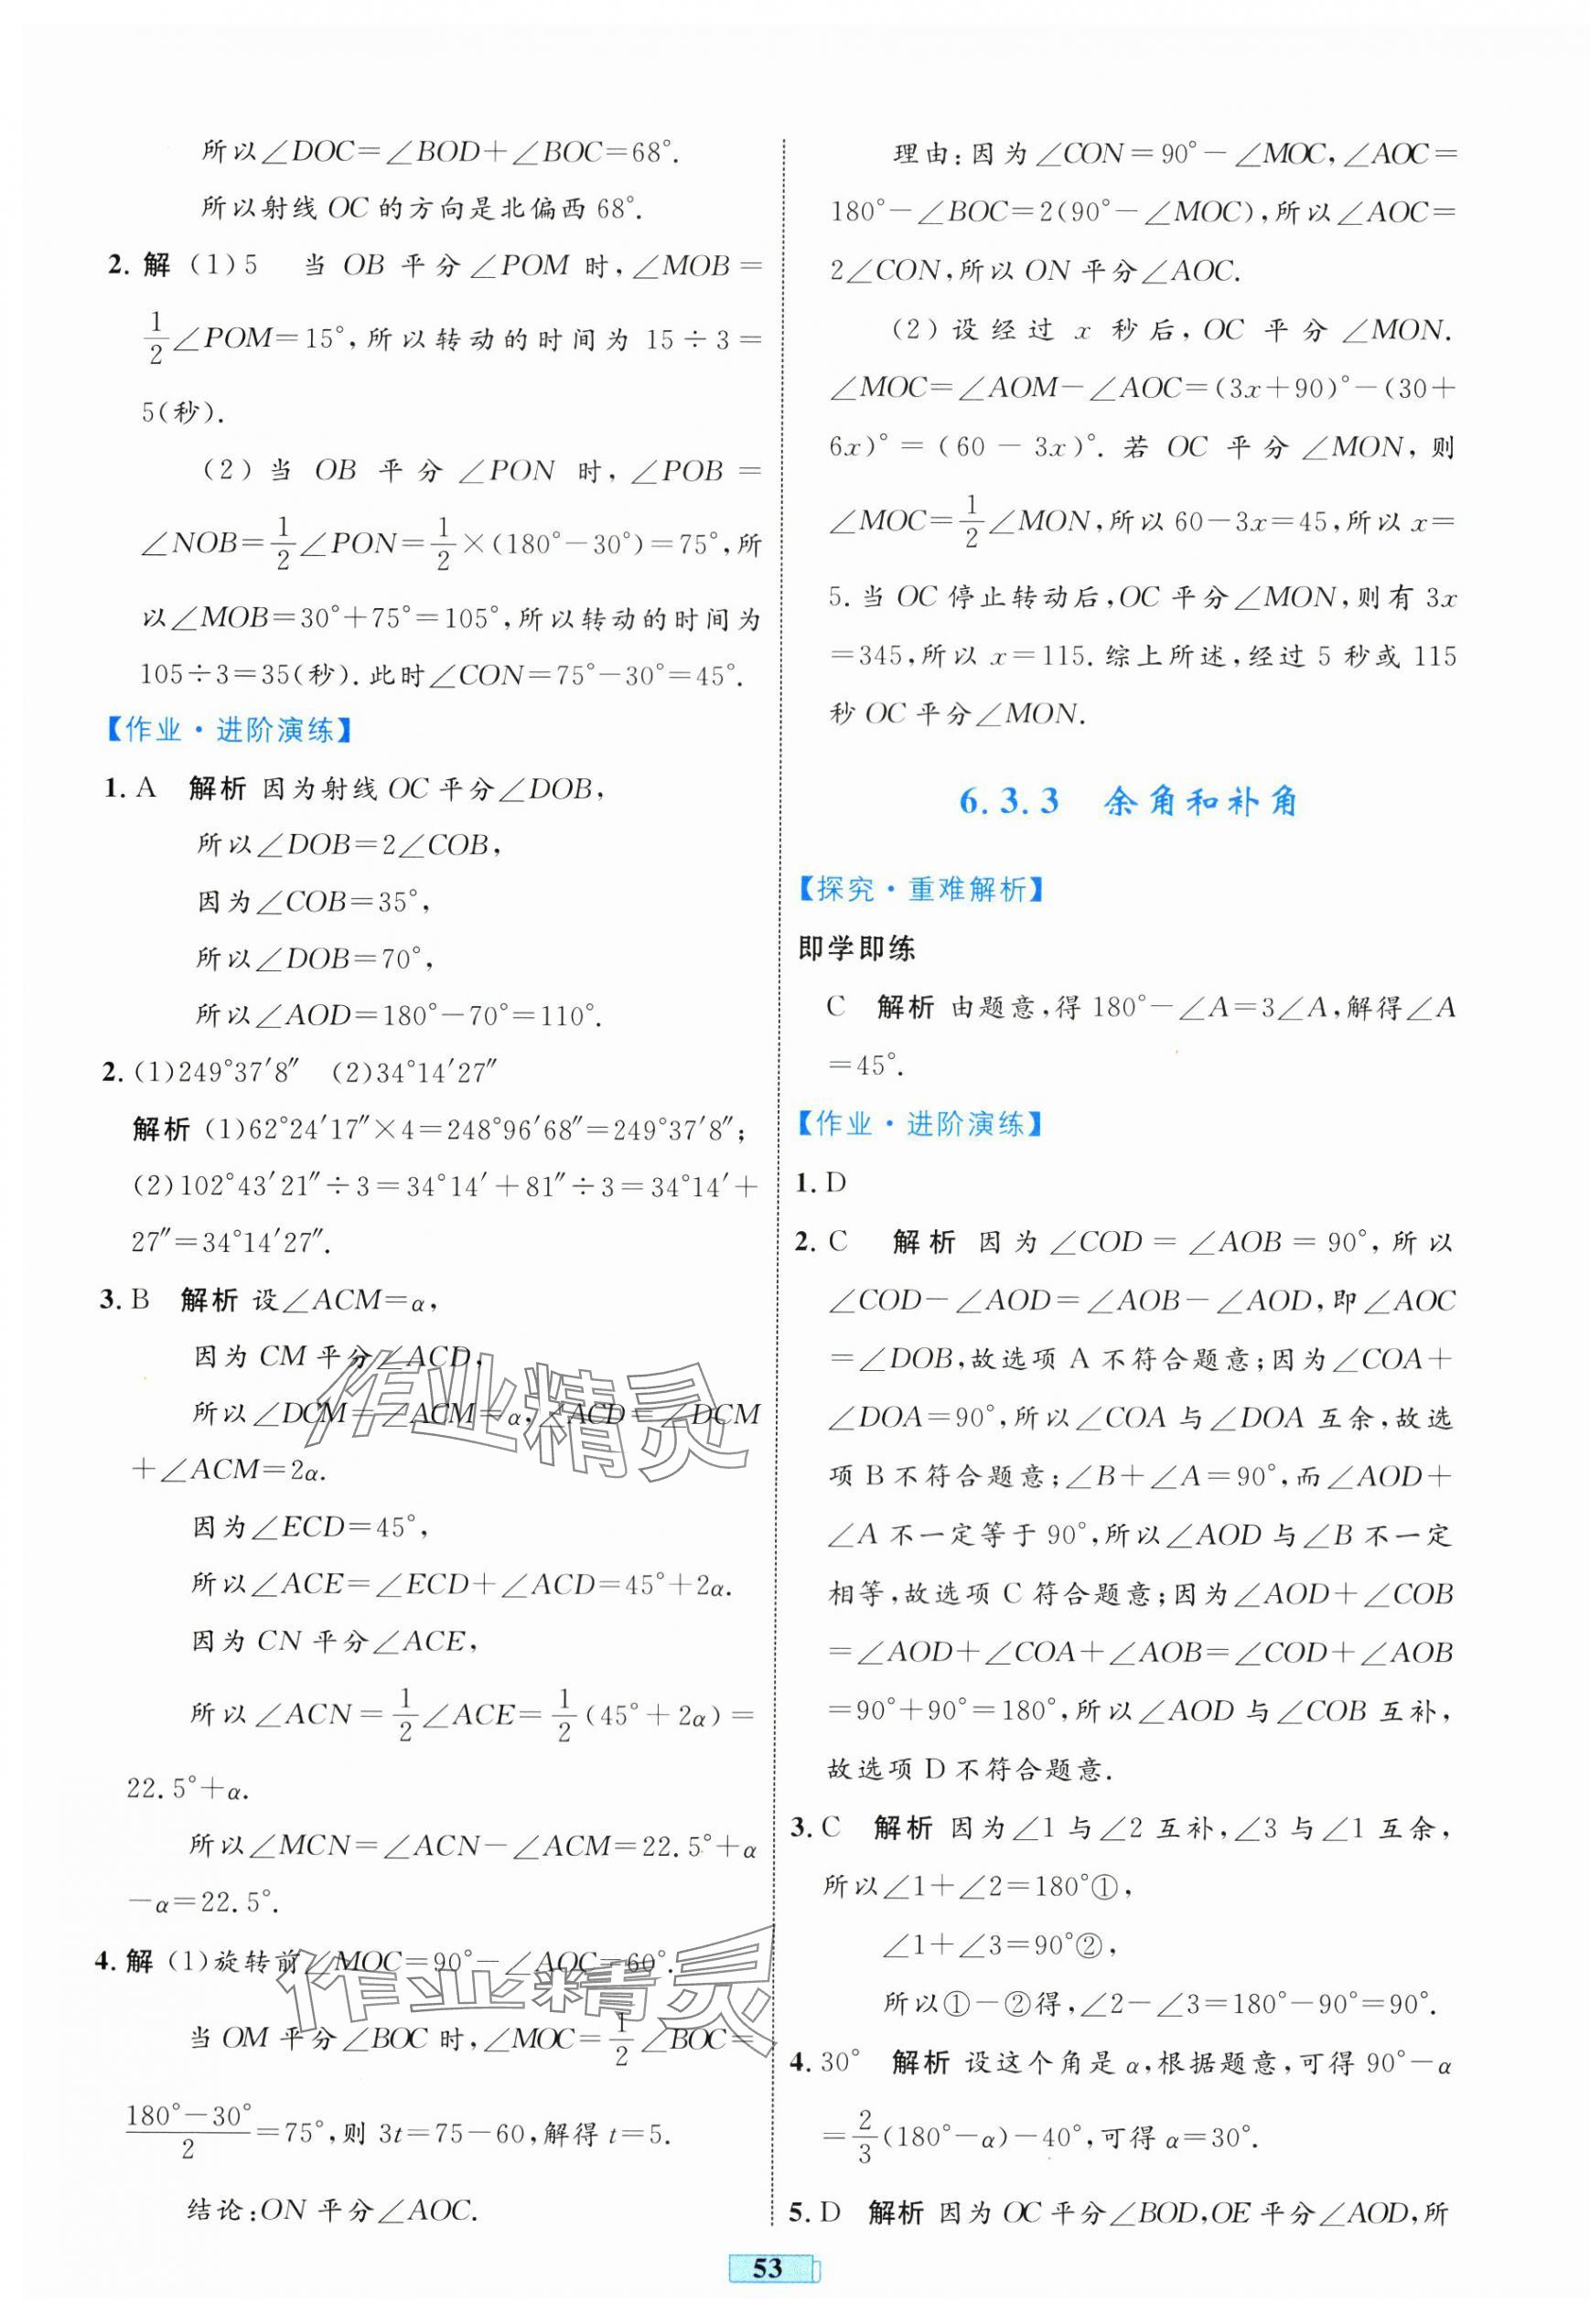 所以∠DOC=∠BOD+∠BOC=68°.
所以射线OC的方向是北偏西68°.
2. 解 (1)5 当 OB 平分∠POM 时,∠MOB=
1/2∠POM=15°,所以转动的时间为 15÷3=
5(秒).
(2)当 OB 平分∠PON 时,∠POB=
∠NOB=1/2∠PON=1/2×(180°-30°)=75°,所
以∠MOB=30°+75°=105°,所以转动的时间为
105÷3=35(秒).此时∠CON=75°-30°=45°.
【作业·进阶演练】
1. A 解析 因为射线OC平分∠DOB,
所以∠DOB=2∠COB,
因为∠COB=35°,
所以∠DOB=70°,
所以∠AOD=180°-70°=110°.
2. (1)249°37′8″ (2)34°14′27″
解析 (1)62°24′17″×4=248°96′68″=249°37′8″;
(2)102°43′21″÷3=34°14′+81″÷3=34°14′+
27″=34°14′27″.
3. B 解析 设∠ACM=α,
因为CM平分∠ACD,
所以∠DCM=∠ACM=α,∠ACD=∠DCM
+∠ACM=2α.
因为∠ECD=45°,
所以∠ACE=∠ECD+∠ACD=45°+2α.
因为CN平分∠ACE,
所以∠ACN=1/2∠ACE=1/2(45°+2α)=
22.5°+α.
所以∠MCN=∠ACN-∠ACM=22.5°+α
-α=22.5°.
4. 解 (1)旋转前∠MOC=90°-∠AOC=60°.
当OM平分∠BOC时,∠MOC=1/2∠BOC=
(180°-30°)/2=75°,则 3t=75-60,解得 t=5.
结论:ON平分∠AOC.
理由:因为∠CON=90°-∠MOC,∠AOC=
180°-∠BOC=2(90°-∠MOC),所以∠AOC=
2∠CON,所以ON平分∠AOC.
(2)设经过 x 秒后,OC 平分∠MON.
∠MOC=∠AOM-∠AOC=(3x+90)°-(30+
6x)°=(60-3x)°.若 OC 平分∠MON,则
∠MOC=1/2∠MON,所以60-3x=45,所以x=
5.当OC停止转动后,OC平分∠MON,则有3x
=345,所以 x=115.综上所述,经过 5 秒或 115
秒OC平分∠MON.
6.3.3 余角和补角
【探究·重难解析】
即学即练
C 解析 由题意,得180°-∠A=3∠A,解得∠A
=45°.
【作业·进阶演练】
1. D
2. C 解析 因为∠COD=∠AOB=90°,所以
∠COD-∠AOD=∠AOB-∠AOD,即∠AOC
=∠DOB,故选项A不符合题意;因为∠COA+
∠DOA=90°,所以∠COA与∠DOA互余,故选
项B不符合题意;∠B+∠A=90°,而∠AOD+
∠A不一定等于90°,所以∠AOD与∠B不一定
相等,故选项C符合题意;因为∠AOD+∠COB
=∠AOD+∠COA+∠AOB=∠COD+∠AOB
=90°+90°=180°,所以∠AOD与∠COB互补,
故选项D不符合题意.
3. C 解析 因为∠1与∠2互补,∠3与∠1互余,
所以∠1+∠2=180°①,
∠1+∠3=90°②,
所以①-②得,∠2-∠3=180°-90°=90°.
4. 30° 解析 设这个角是α,根据题意,可得90°-α
=2/3(180°-α)-40°,可得α=30°.
5. D 解析 因为OC平分∠BOD,OE平分∠AOD,所
作业精灵
作业精灵
53